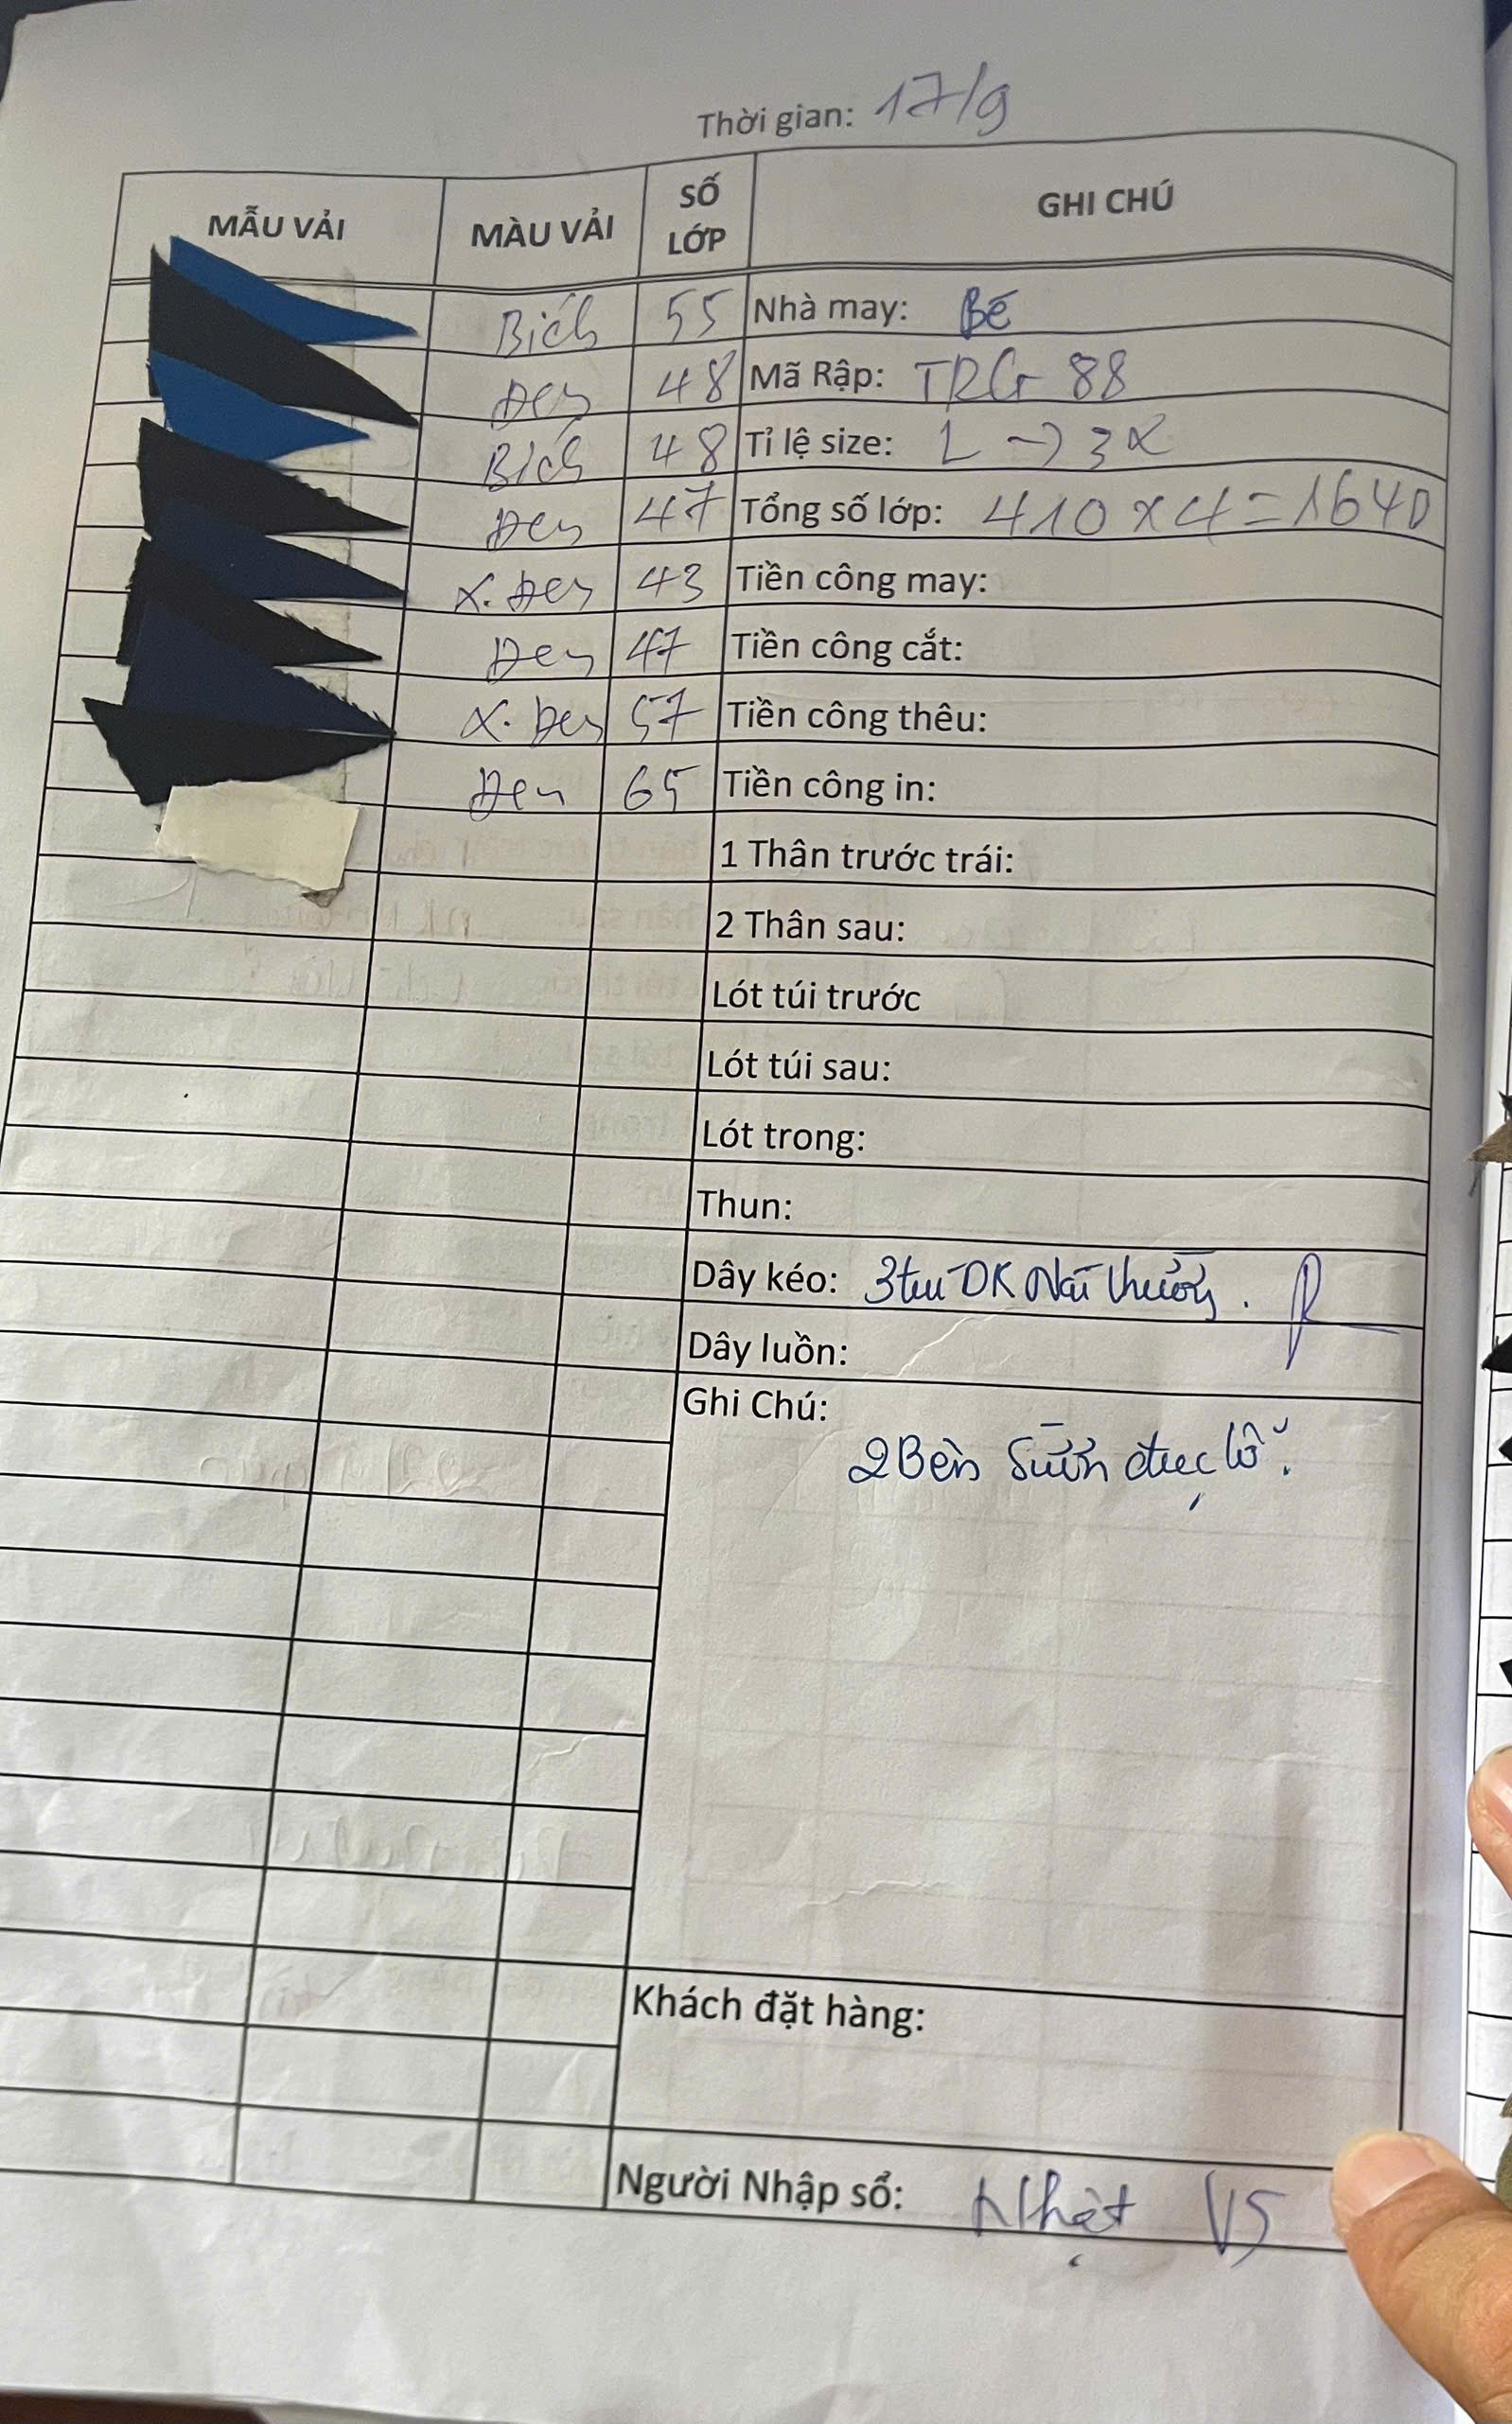 Thời gian: 17/9
MẪU VẢI MÀU VẢI SỐ LỚP GHI CHÚ
Bích 55 Nhà may: Bé
Đen 48 Mã Rập: TRG 88
Bích 48 Tỉ lệ size: L → 3X
Đen 47 Tổng số lớp: 410 x 4 = 1640
X. Đen 43 Tiền công may:
Đen 47 Tiền công cắt:
X. Đen 57 Tiền công thêu:
Đen 65 Tiền công in:
1 Thân trước trái:
2 Thân sau:
Lót túi trước
Lót túi sau:
Lót trong:
Thun:
Dây kéo: 3 túi DK
Dây luồn:
Ghi Chú:
2 Bên Sườn đục lỗ.
Khách đặt hàng:
Người Nhập sổ: Nhật VS